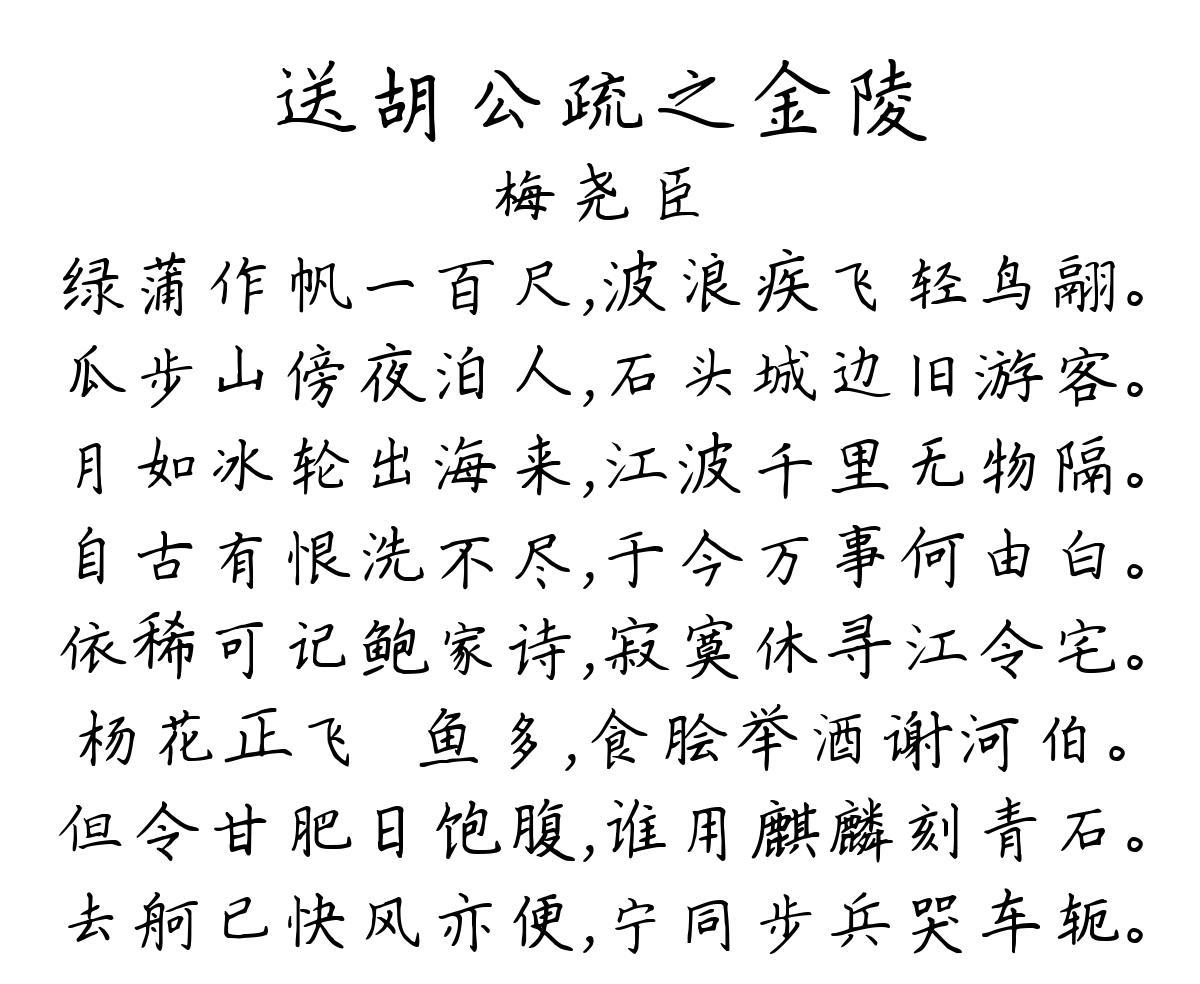 送胡公疏之金陵
梅尧臣
绿蒲作帆一百尺,波浪疾飞轻鸟翮。
瓜步山傍夜泊人,石头城边旧游客。
月如冰轮出海来,江波千里无物隔。
自古有恨洗不尽,于今万事何由白。
依稀可记鲍家诗,寂寞休寻江令宅。
杨花正飞 鱼多,食脍举酒谢河伯。
但令甘肥日饱腹,谁用麒麟刻青石。
去舸已快风亦便,宁同步兵哭车轭。